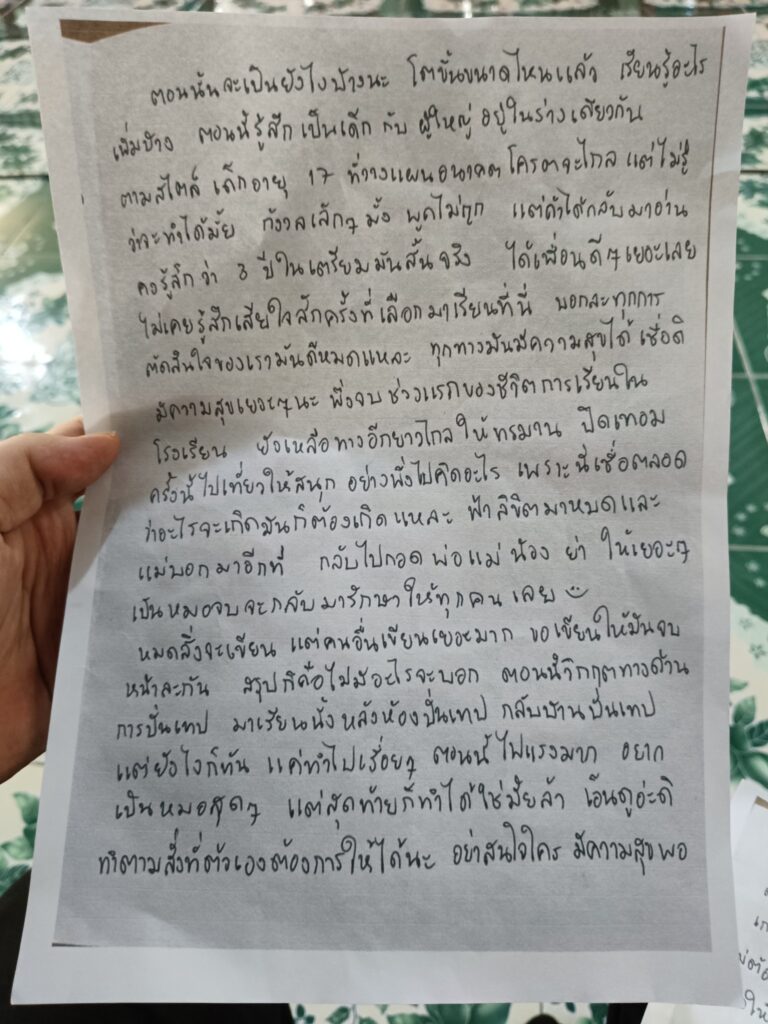 ตอนนั้นจะเป็นยังไงบ้างนะ โตขึ้นขนาดไหนแล้ว เรียนรู้อะไร
เพิ่มบ้าง ตอนนี้รู้สึกเป็นเด็ก กับ ผู้ใหญ่ อยู่ในร่างเดียวกัน
ตามสไตล์ เด็กอายุ 17 ที่วางแผนอนาคตโครตจะไกล แต่ไม่รู้
ว่าจะทำได้มั้ย กังวลเล็กๆ มั้ง พูดไม่ถูก แต่ถ้าได้กลับมาอ่าน
คงรู้สึกว่า 3 ปีในเตรียมมันสั้นจริง ได้เพื่อนดีๆเยอะเลย
ไม่เคยรู้สึกเสียใจสักครั้งที่เลือกมาเรียนที่นี่ บอกละทุกการ
ตัดสินใจของเรามันดีหมดแหละ ทุกทางมันมีความสุขได้ เชื่อดิ
มีความสุขเยอะๆนะ พึ่งจบช่วงแรกของชีวิตการเรียนใน
โรงเรียน ยังเหลือทางอีกยาวไกลให้ทรมาน ปิดเทอม
ครั้งนี้ไปเที่ยวให้สนุก อย่างพึ่งไปคิดอะไร เพราะนี่เชื่อตลอด
ว่าอะไรจะเกิดมันก็ต้องเกิดแหละ ฟ้าลิขิตมาหมดและ
แม่บอกมาอีกที กลับไปกอด พ่อแม่ น้อง ย่า ให้เยอะๆ
เป็นหมอจบจะกลับมารักษาให้ทุกคนเลย
หมดสิ่งจะเขียน แต่คนอื่นเขียนเยอะมาก ขอเขียนให้มันจบ
หน้าละกัน สรุปก็คือไม่มีอะไรจะบอก ตอนนี้วิกฤตทางด้าน
การปั่นเทป มาเรียนนั่งหลังห้องปั่นเทป กลับบ้านปั่นเทป
แต่ยังไงก็ทัน แค่ทำไปเรื่อยๆ ตอนนี้ไฟแรงมาก อยาก
เป็นหมอสุดๆ แต่สุดท้ายก็ทำได้ใช่มั้ยล้า เอ็นดูอ่ะดิ
ทำตามสิ่งที่ตัวเองต้องการให้ได้นะ อย่าสนใจใคร มีความสุขพอ